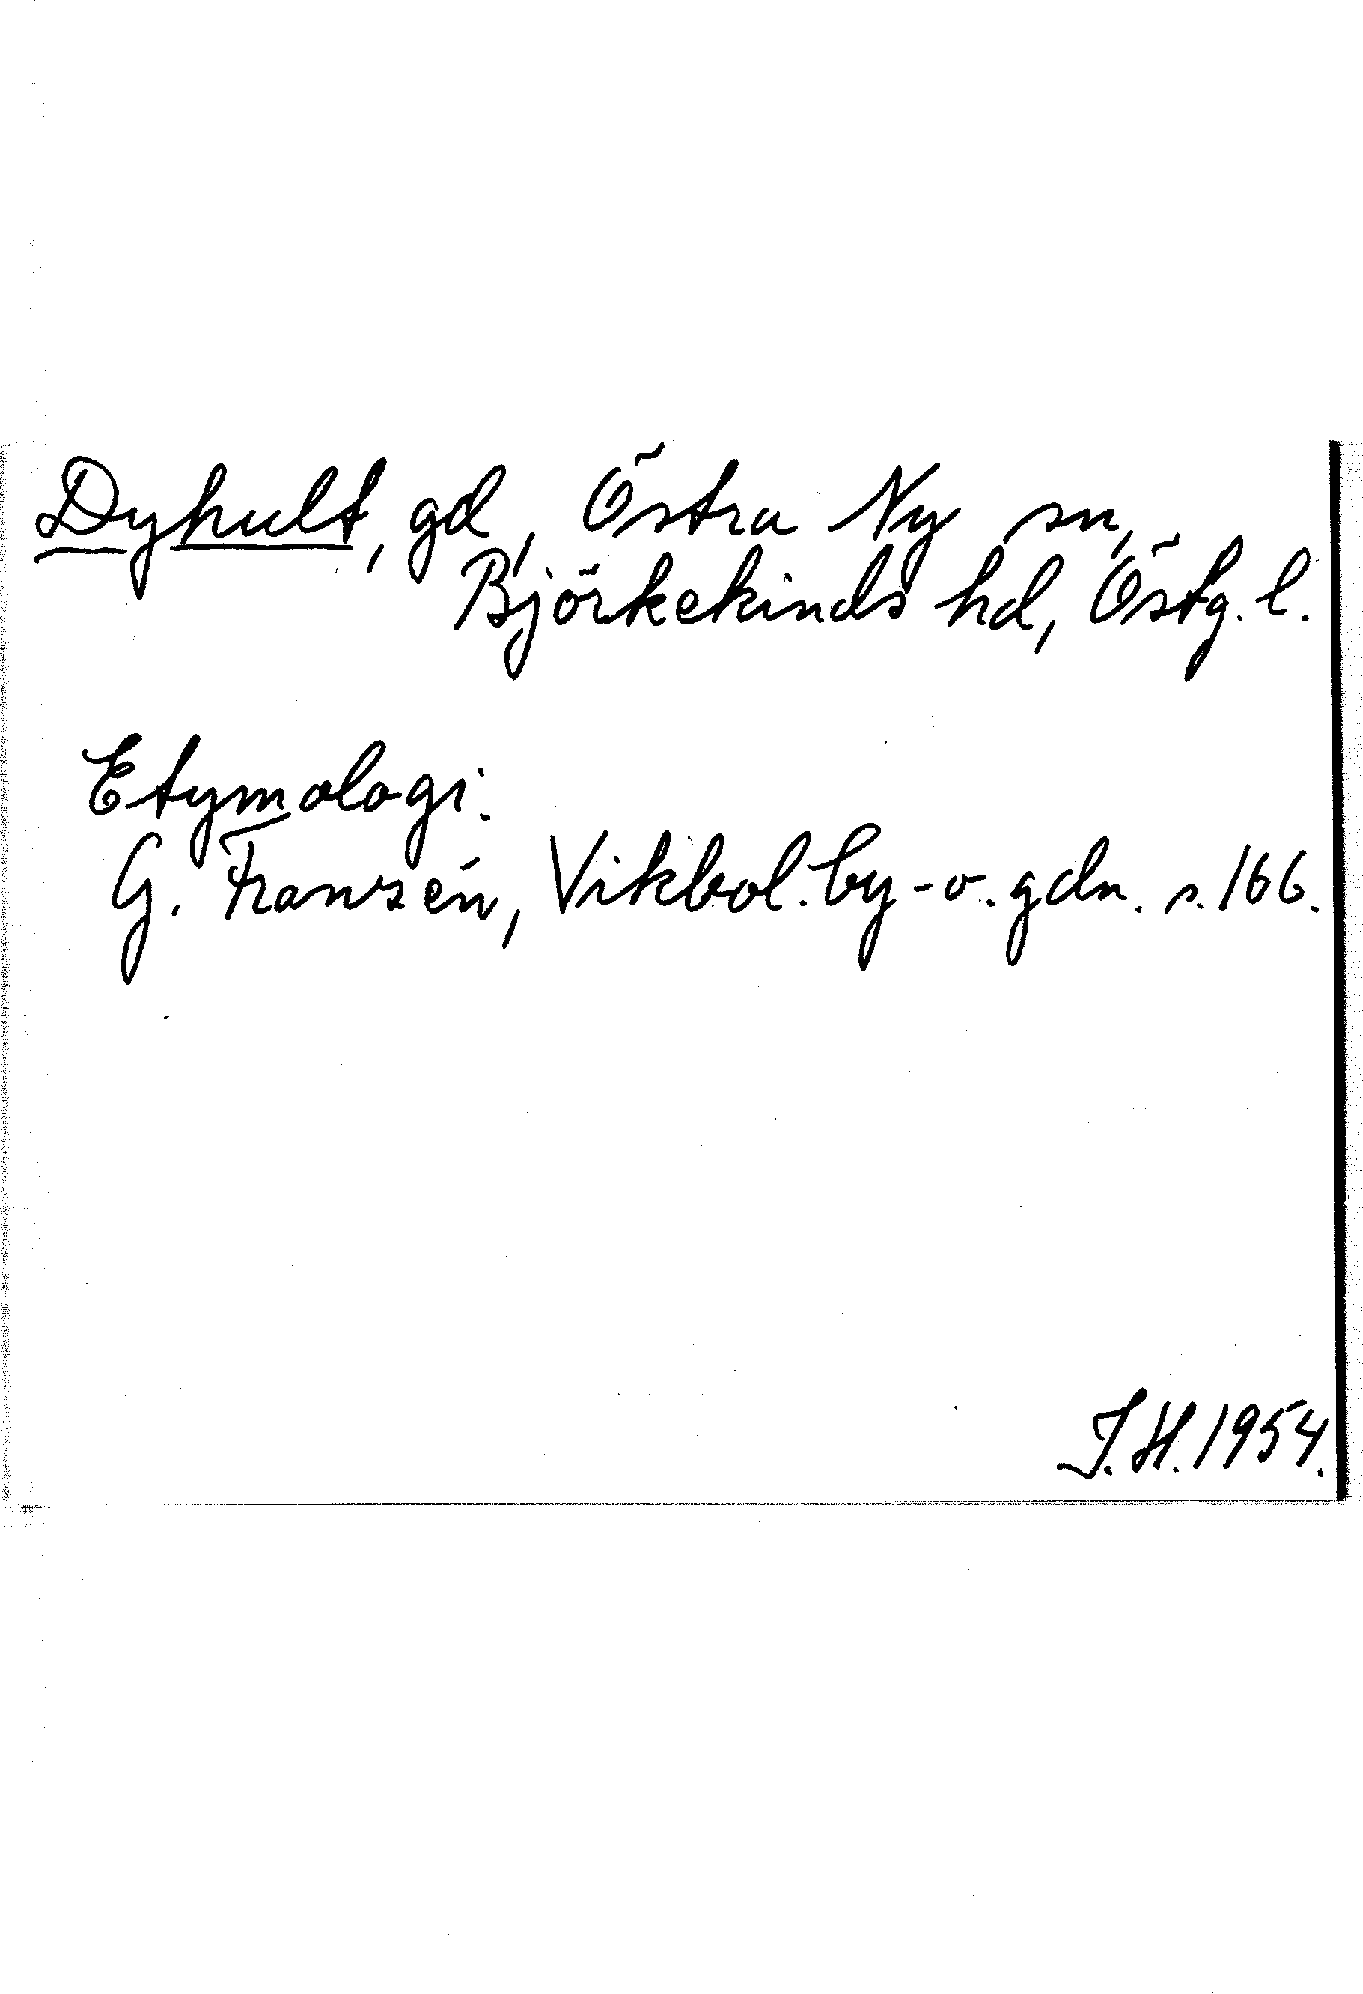 Dyhult, gd, Östra Ny sn,
Björkekinds hd, Östg. l.
Etymologi.
G. Franzén, Vikbol. by- o. gdn. s. 166.
J. H. 1954.